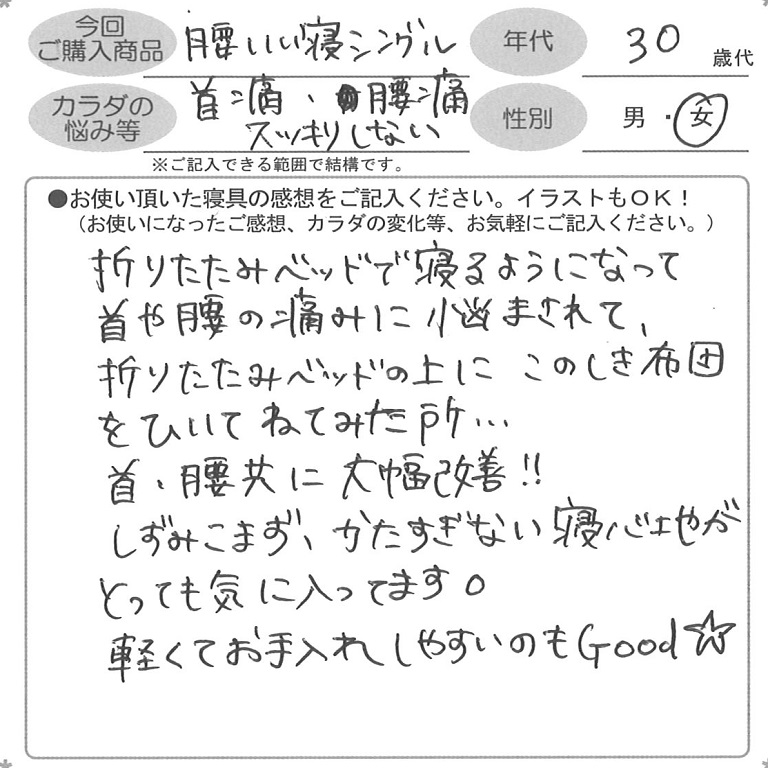 今回
ご購入商品
腰いい寝シングル
年代
30
歳代
カラダの
悩み等
首痛、腰痛
スッキリしない
性別
男・女
※ご記入できる範囲で結構です。
●お使い頂いた寝具の感想をご記入ください。イラストもOK！
（お使いになったご感想、カラダの変化等、お気軽にご記入ください。）
折りたたみベッドで寝るようになって
首や腰の痛みに小悩まされて、
折りたたみベッドの上に このしき布団
をひいて ねてみた所…
首、腰共に 大幅改善!!
しずみこまず、かたすぎない寝心地が
とっても気に入ってます。
軽くてお手入れしやすいのもGood☆